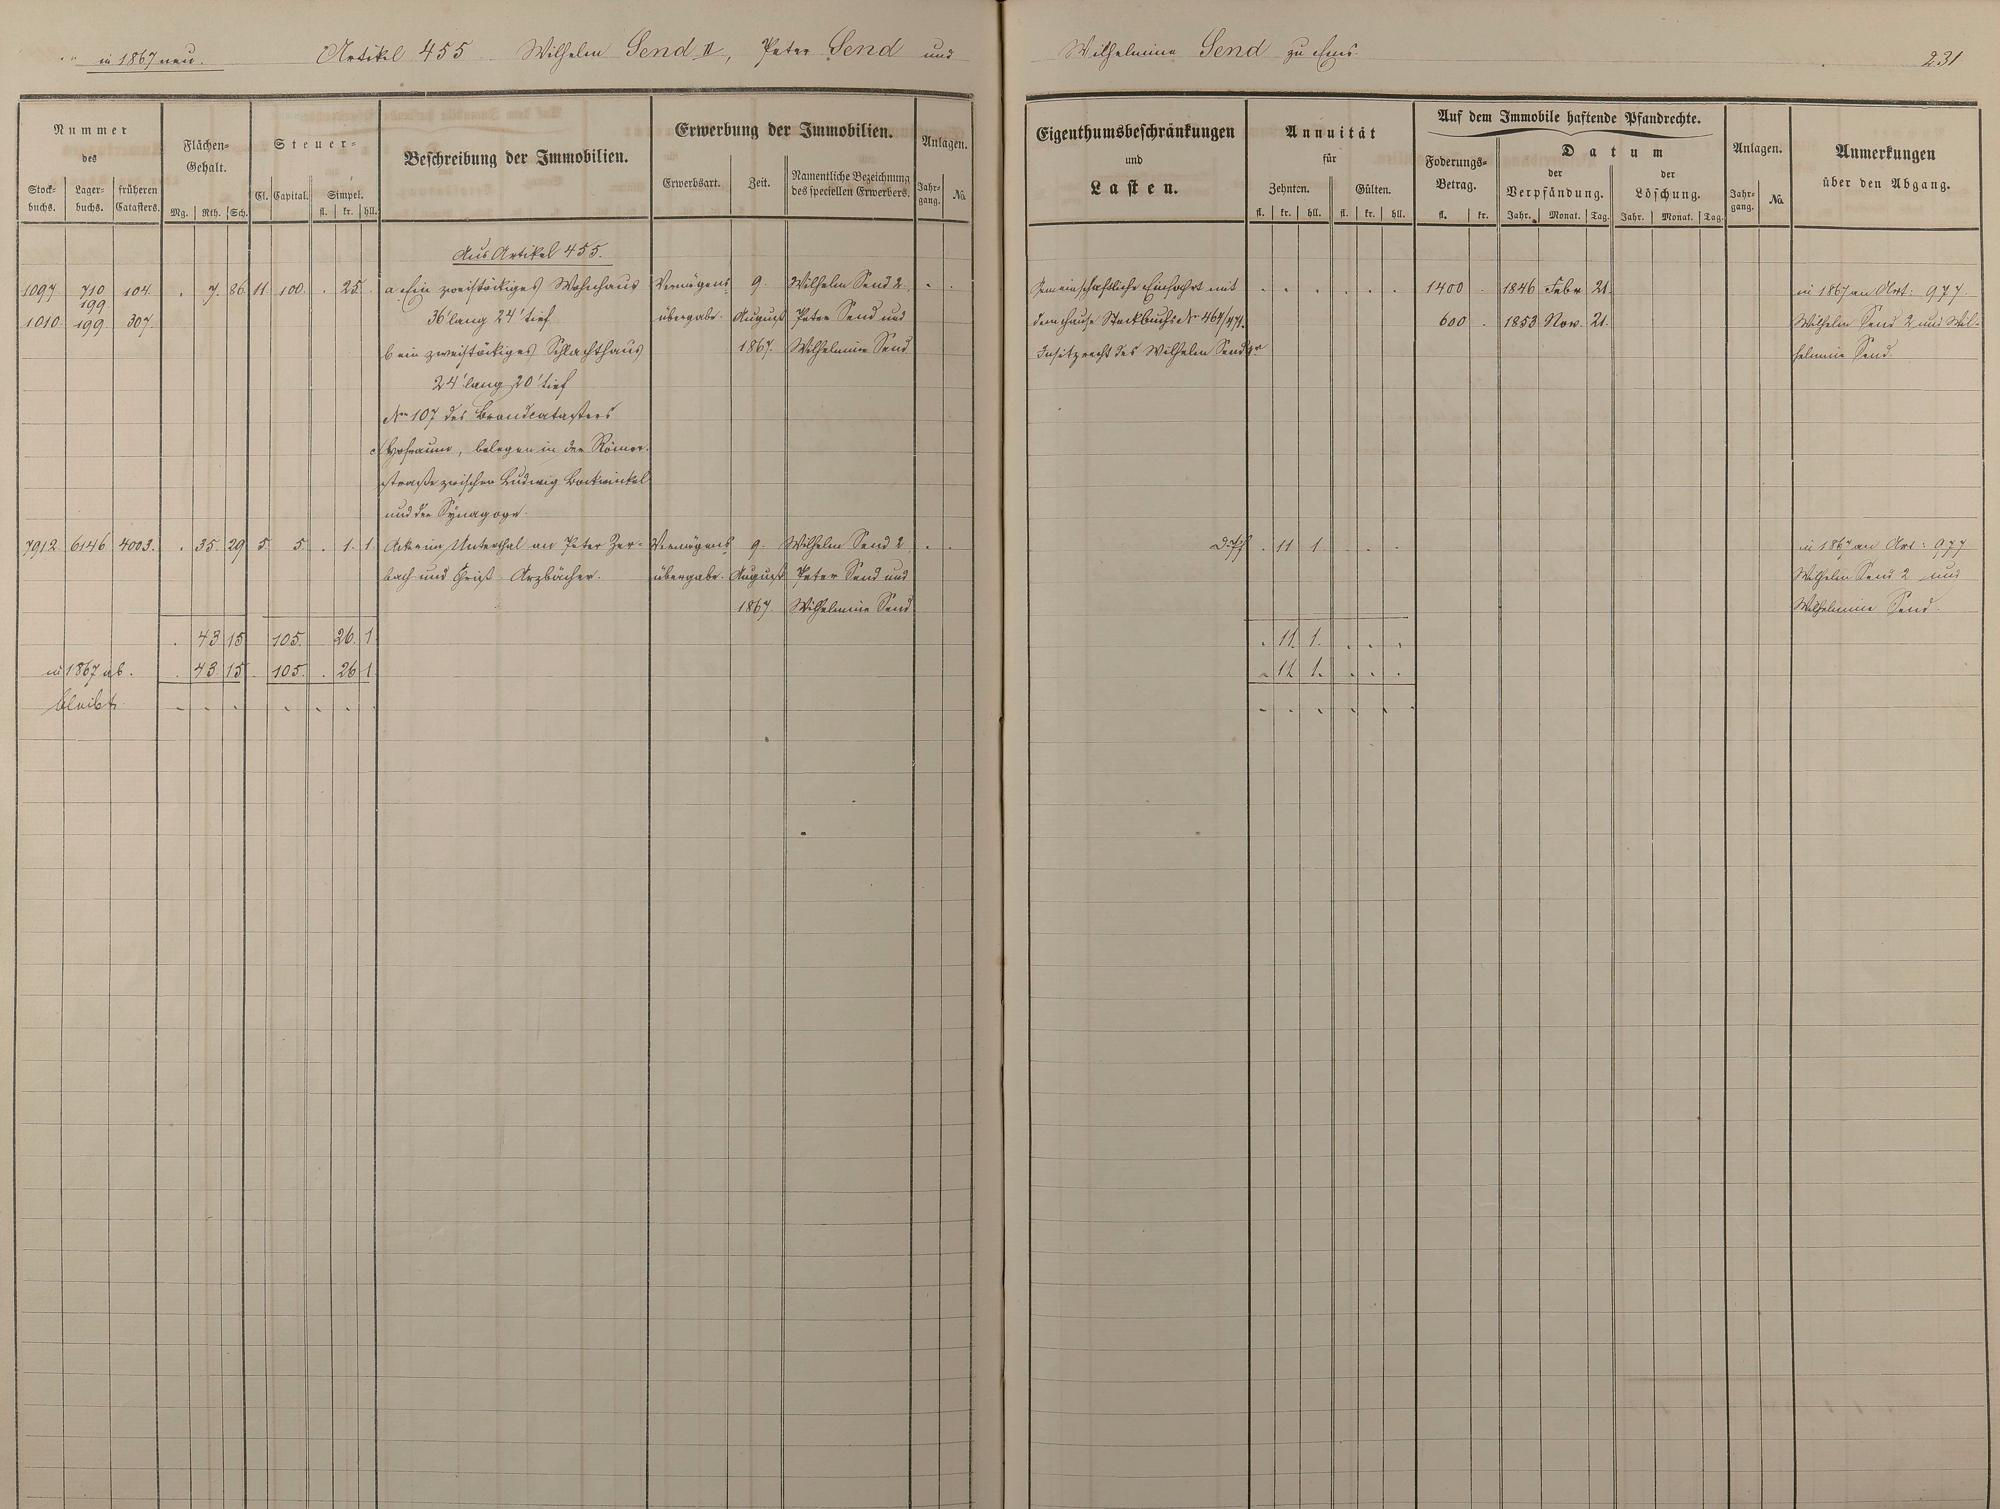 in 1867 neu. Artikel 455 Wilhelm Send II, Peter Send und Wilhelmine Send zu Ems 231
Nummer
des
Stock-
buchs.
Lager-
buchs.
früheren
Catasters.
Flächen-
Gehalt.
Mg. Rth. Sch.
Steuer-
Cl. Capital. Simpel.
fl. kr. hll.
Beschreibung der Immobilien.
Erwerbung der Immobilien.
Erwerbsart. Zeit. Namentliche Bezeichnung
des speciellen Erwerbers.
Anlagen.
Jahr-
gang. No.
Eigenthumsbeschränkungen
und
Lasten.
Annuität
für
Zehnten. Gülten.
fl. kr. hll. fl. kr. hll.
Auf dem Immobile haftende Pfandrechte.
Foderungs-
Betrag.
fl. kr.
Datum
der
Verpfändung.
Jahr. Monat. Tag.
der
Löschung.
Jahr. Monat. Tag.
Anlagen.
Jahr-
gang. No.
Anmerkungen
über den Abgang.
Aus Artikel 455.
1097 710 104 . 7. 86 11 100. . 25. . a Ein zweistöckiges Wohnhaus Vermögens 9. Wilhelm Send 2. . . Gemeinschaftliche Einfahrt mit . . . . . . 1400 . 1846 Febr 21. in 1867 an Art: 977.
199.
1010 199. 307. 36' lang 24' tief übergabe. August Peter Send und dem Hause Stockbuchs Nr 467/471. 600 . 1853 Nov. 21. Wilhelm Send 2 und Wil-
b ein zweistöckiges Schlachthaus 1867. Wilhelmine Send Insitzrecht des Wilhelm Send helmine Send.
24' lang 20' tief
Nro 107 des Brandcatasters
c Hofraum, belegen in der Römer-
straße zwischen Ludwig Bockwinkel
und der Synagoge.
7912 6146 4003. . 35. 29 5 5. . 1. 1 Acker im Unterthal an Peter Zer- Vermögens 9. Wilhelm Send 2 . . . 11 1. . . . in 1867 an Art: 977
bach und Christ. Arzbächer. übergabe. August Peter Send und Wilhelm Send 2 und
1867. Wilhelmine Send Wilhelmine Send.
. 43 15 105. . 26. 1. . 11. 1. . . .
in 1867 ab. . 43 15 . 105. . 26 1. . 11 1. . . .
bleibt. . . . . . . . . . . . . .